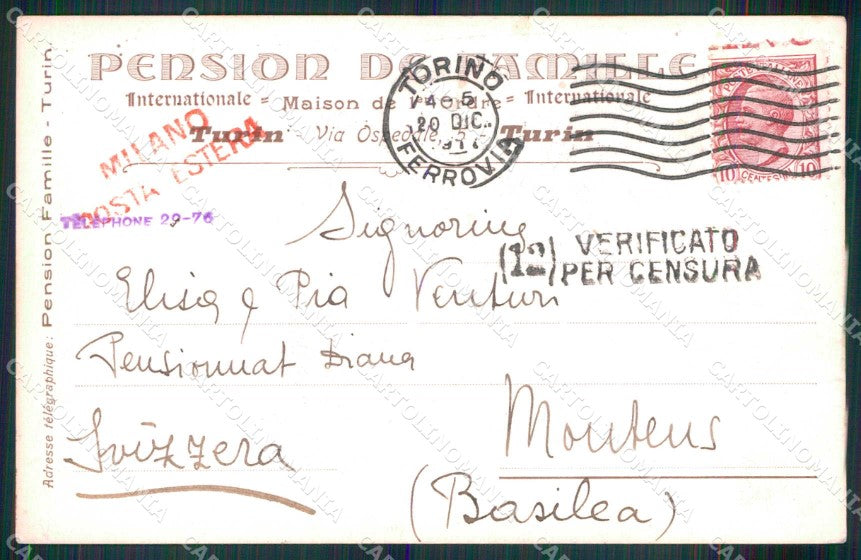 PENSION DE FAMILLE
Internationale = Maison de 1er ordre = Internationale
Turin - Via Ospedale, 5 - Turin
MILANO
POSTA ESTERA
TELEPHONE 29-76
TORINO
20 DIC.
FERROVIA
10 CENTESIMI 10
Signorine
(12) VERIFICATO
PER CENSURA
Elisa e Pia Venturi
Pensionnat Diana
Moutens
Svizzera
(Basilea)
Adresse télégraphique: Pension Famille - Turin.
CARTOLINOMANIA